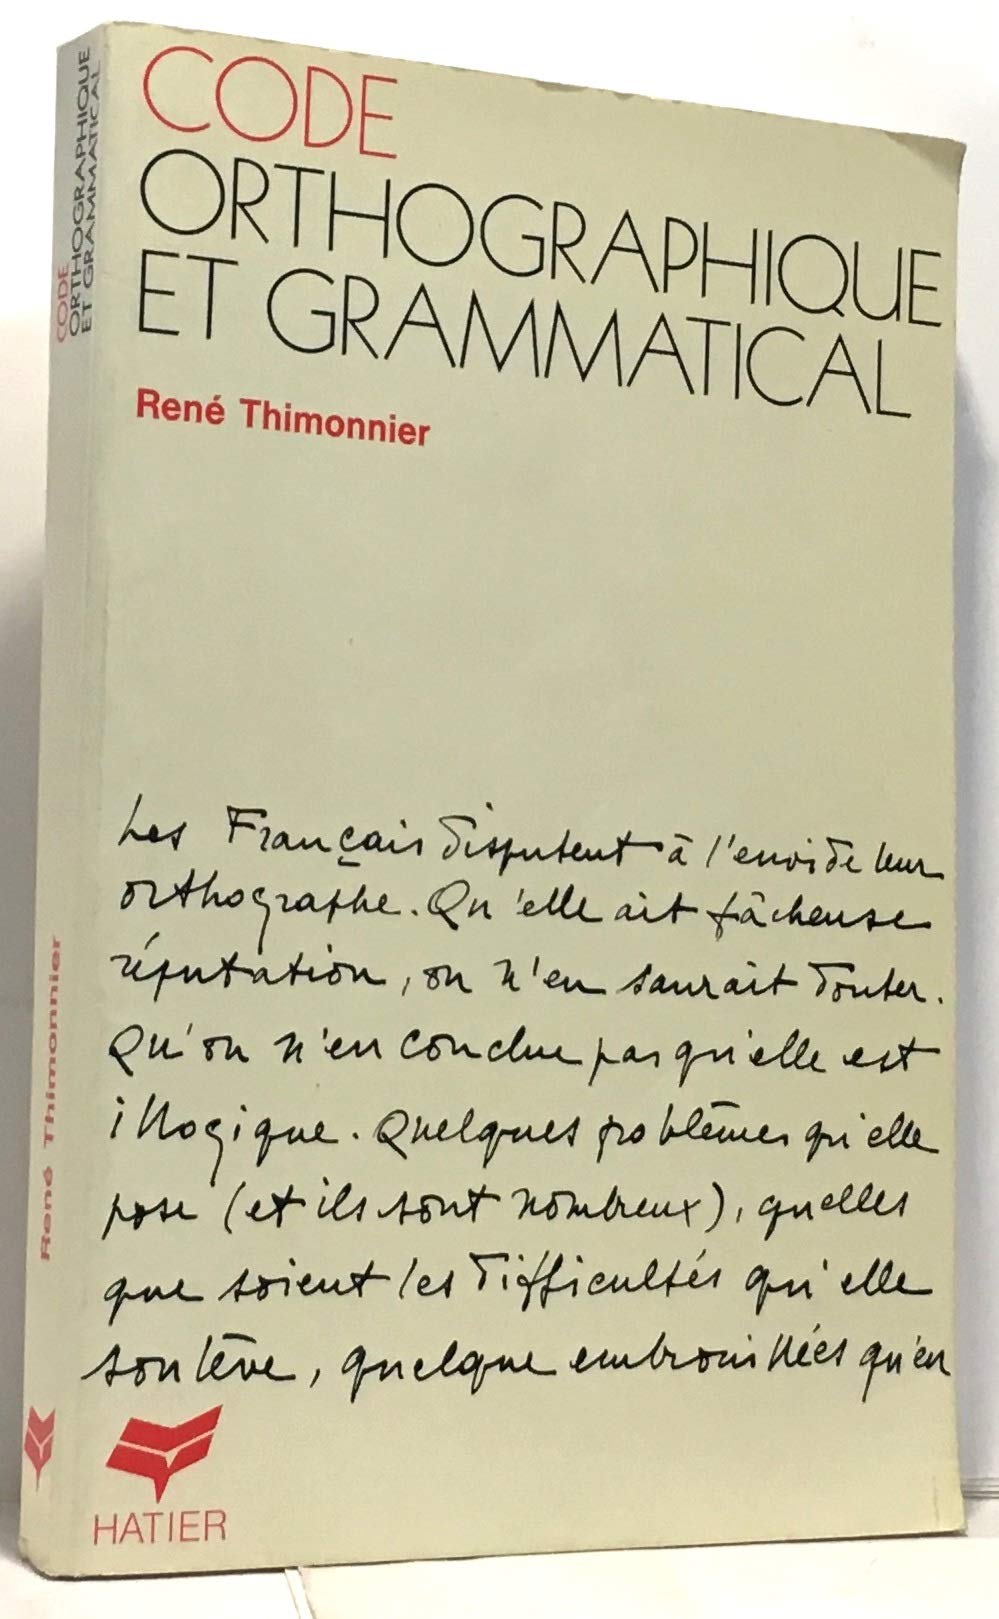 CODE
ORTHOGRAPHIQUE
ET GRAMMATICAL
René Thimonnier
Les Français disputent à l'envi de leur
orthographe. Qu'elle ait fâcheuse
réputation, on n'en saurait douter.
Qu'on n'en conclue pas qu'elle est
illogique. Quelques problèmes qu'elle
pose (et ils sont nombreux), quelles
que soient les difficultés qu'elle
soulève, quelque embrouillées qu'en
HATIER
CODE
ORTHOGRAPHIQUE
ET GRAMMATICAL
René Thimonnier